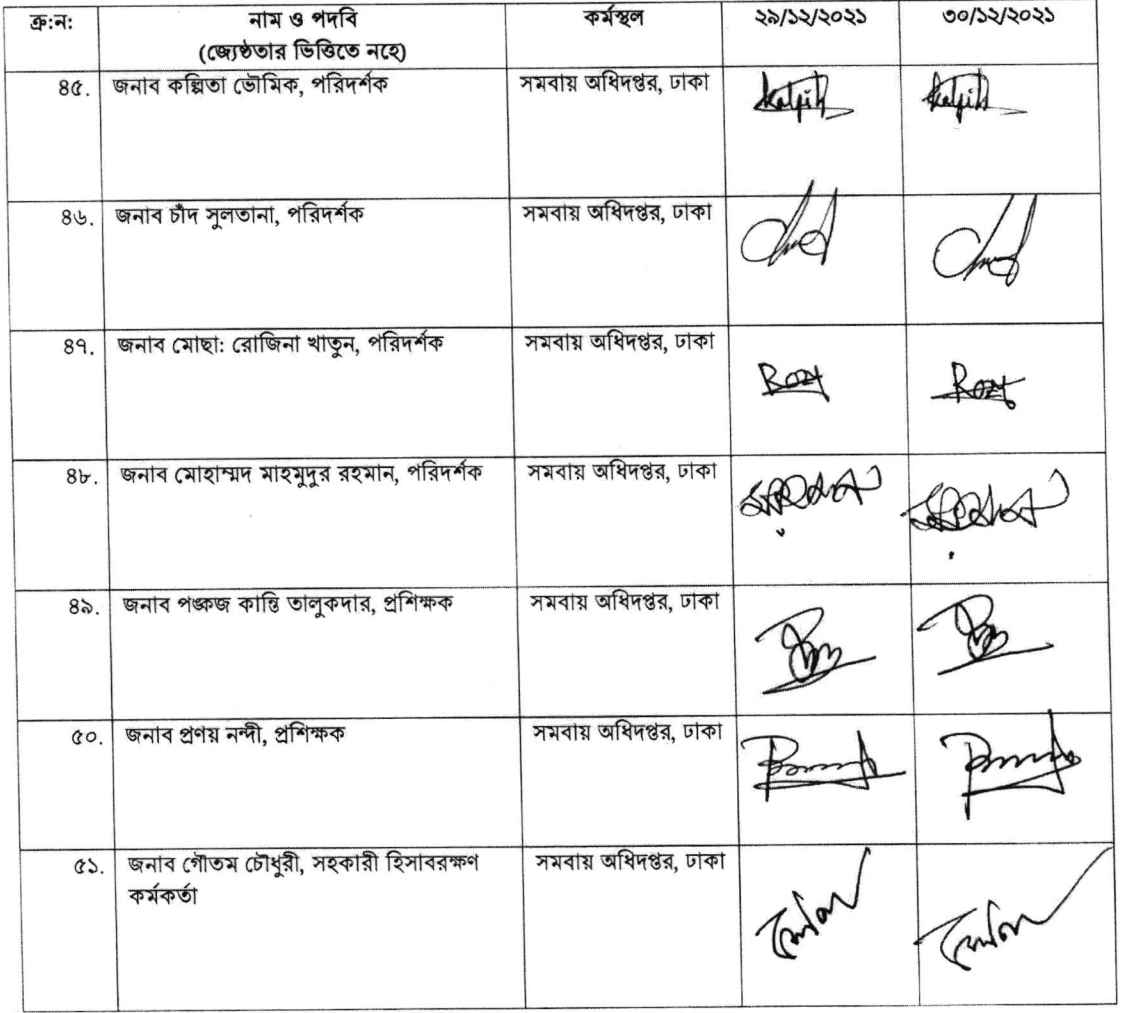 ক্র:ন: নাম ও পদবি কর্মস্থল ২৯/১২/২০২১ ৩০/১২/২০২১
(জ্যেষ্ঠতার ভিত্তিতে নহে)
৪৫. জনাব কল্পিতা ভৌমিক, পরিদর্শক সমবায় অধিদপ্তর, ঢাকা
৪৬. জনাব চাঁদ সুলতানা, পরিদর্শক সমবায় অধিদপ্তর, ঢাকা
৪৭. জনাব মোছা: রোজিনা খাতুন, পরিদর্শক সমবায় অধিদপ্তর, ঢাকা
৪৮. জনাব মোহাম্মদ মাহমুদুর রহমান, পরিদর্শক সমবায় অধিদপ্তর, ঢাকা
৪৯. জনাব পঙ্কজ কান্তি তালুকদার, প্রশিক্ষক সমবায় অধিদপ্তর, ঢাকা
৫০. জনাব প্রণয় নন্দী, প্রশিক্ষক সমবায় অধিদপ্তর, ঢাকা
৫১. জনাব গৌতম চৌধুরী, সহকারী হিসাবরক্ষণ সমবায় অধিদপ্তর, ঢাকা
কর্মকর্তা